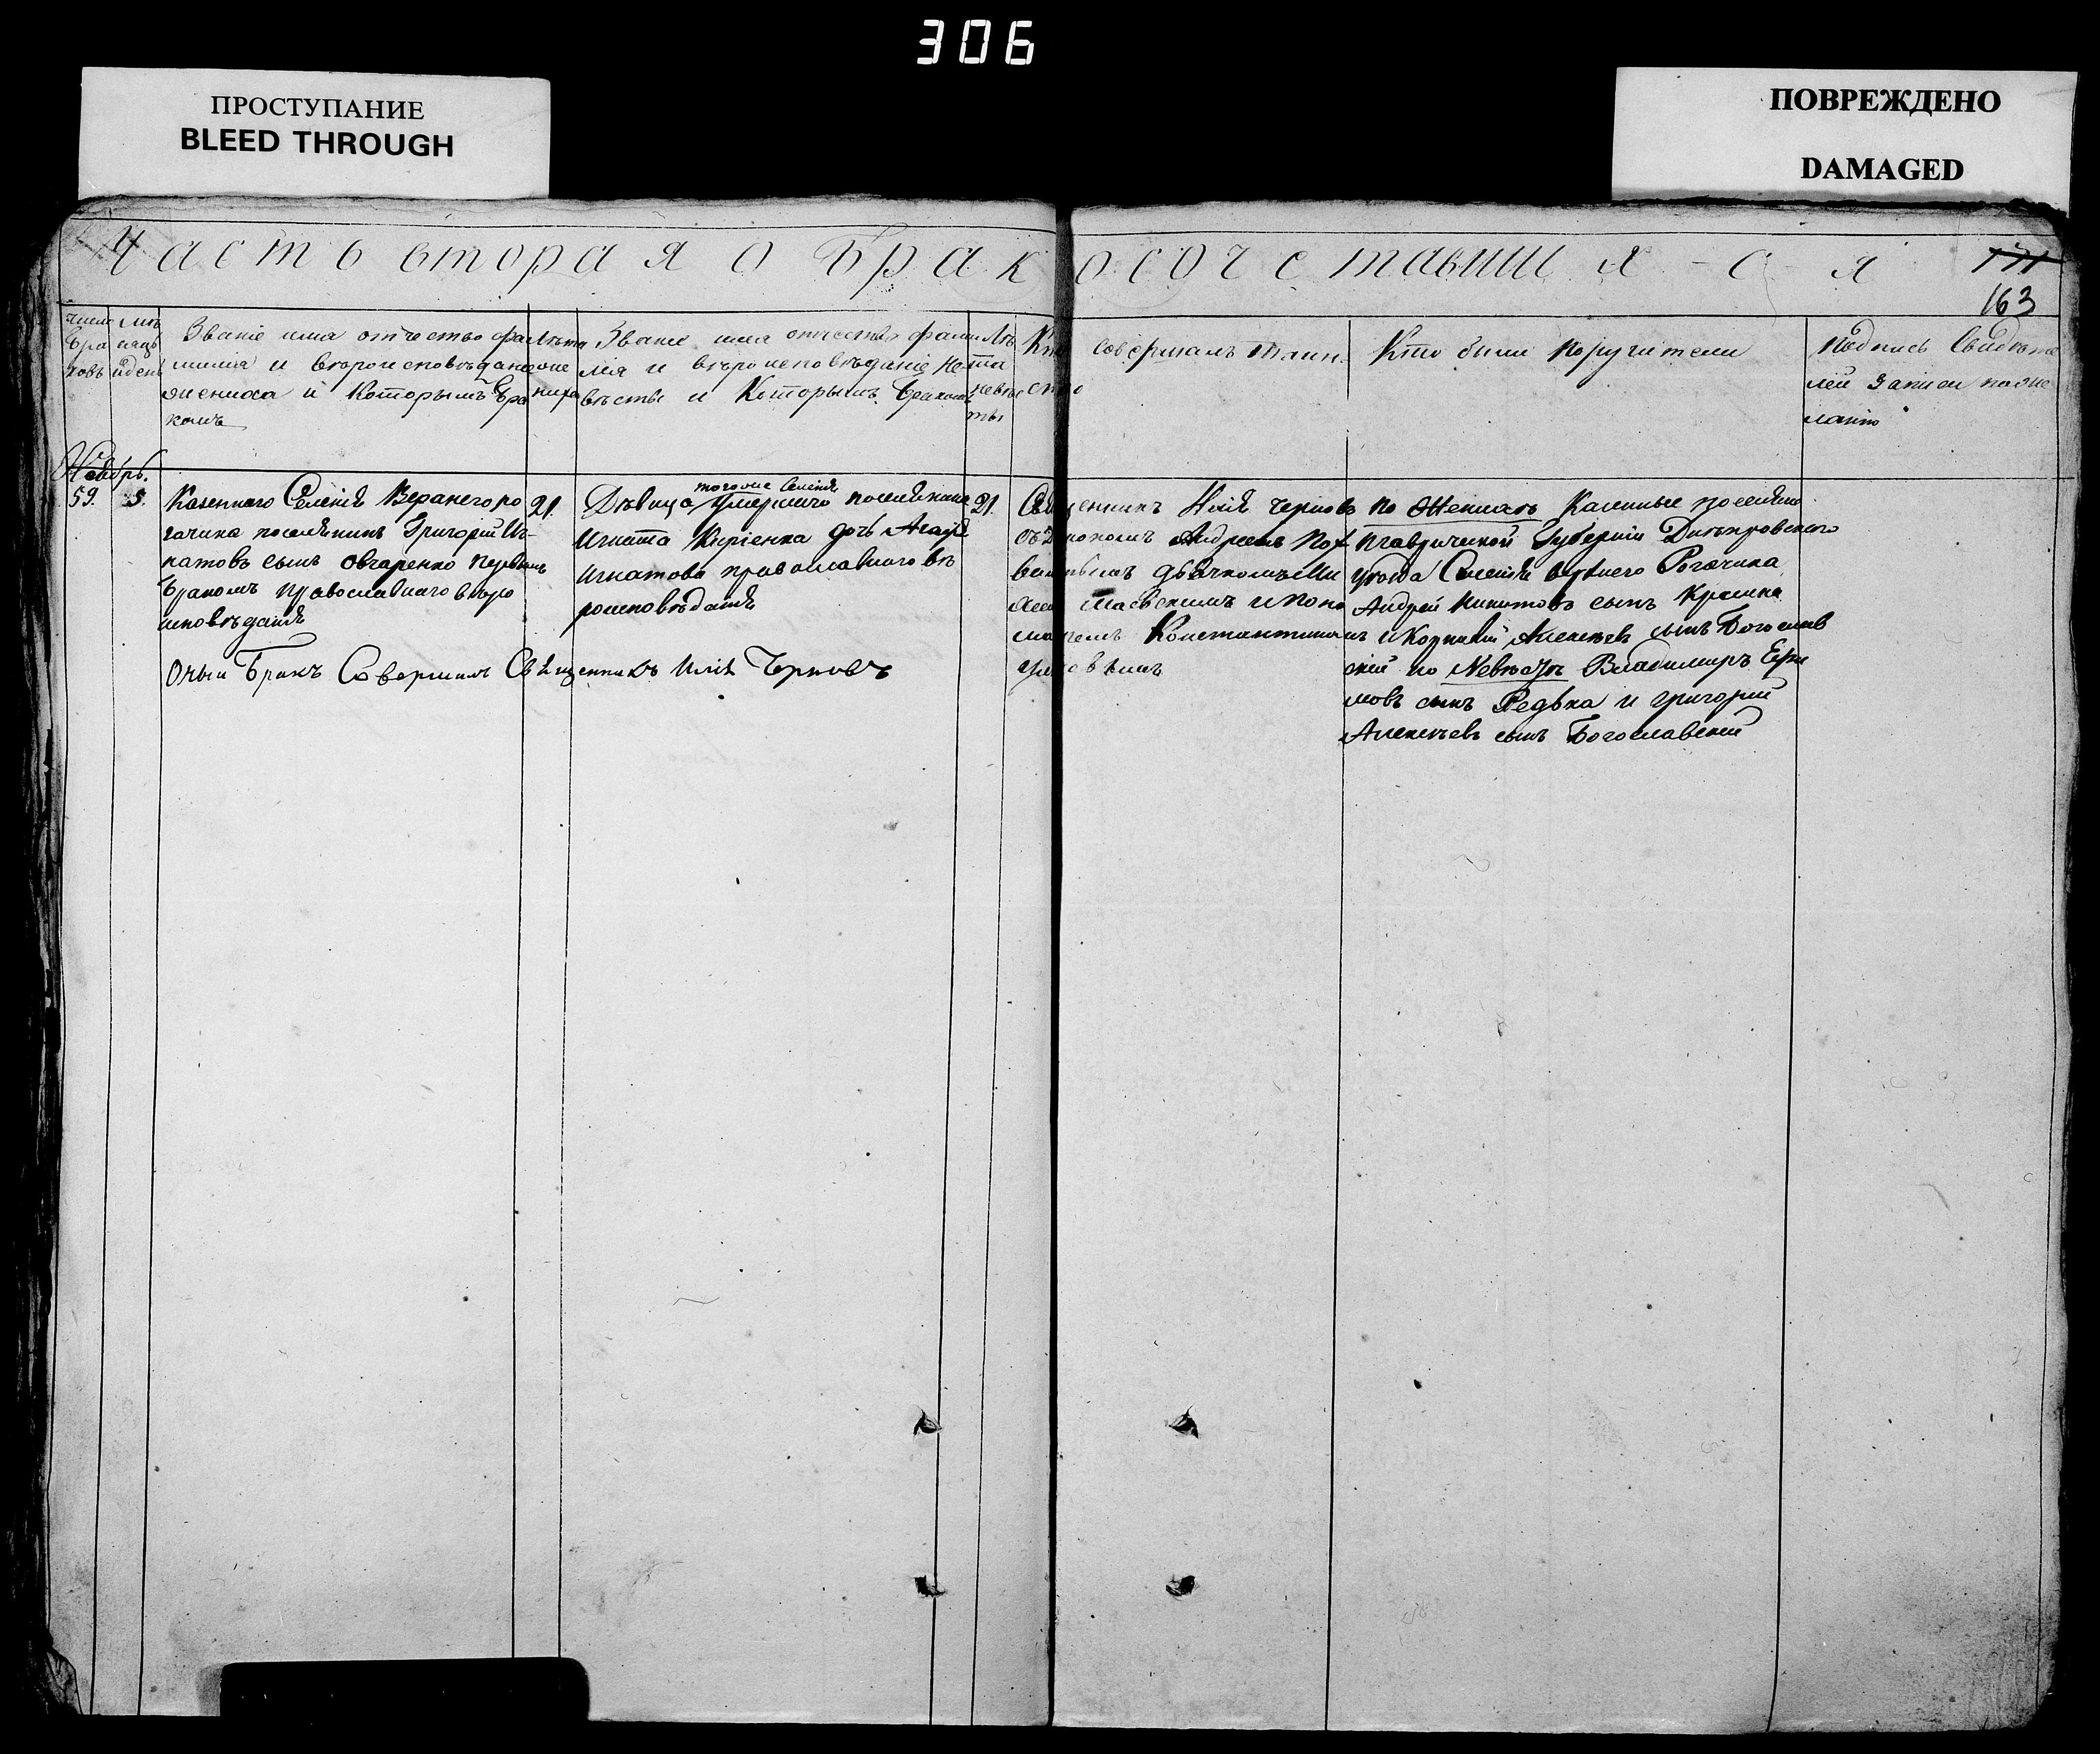 306
ПРОСТУПАНИЕ
BLEED THROUGH
ПОВРЕЖДЕНО
DAMAGED
Часть вторая о бракосочетавшихся
171
163
число браковъ
мѣсяцъ и день
Званіе имя отчество фамилія и вѣроисповѣданіе
жениха и которымъ бракомъ
Лѣта жениха
Званіе имя отчество фамилія и вѣроисповѣданіе
невѣсты и которымъ бракомъ
Лѣта невѣсты
Кто совершалъ таинство
Кто были поручители
Подпись свидѣтелей записи по желанію
Ноябрь.
59. 5.
Казеннаго Селенія Верхнего ро
гачика поселянинъ Григорій Иг-
натовъ сынъ Овчаренко первымъ
бракомъ православнаго вѣро
исповѣданія
21.
Дѣвица тогоже Селенія умершаго поселянина
Игната Киріенка дочь Агафія
Игнатова православнаго вѣ
роисповѣданія
21.
Священникъ Илія Черновъ
съ Діакономъ Андреемъ
дьячкомъ
и поно
маремъ Константиномъ
По Женихѣ Казенные поселяне
Таврической Губерніи Днѣпровского
уѣзда Селенія верхнего Рогачика
Андрей Никитовъ сынъ
и Корнилій Алексѣевъ сынъ Богослав
скій по Невѣстѣ Владимиръ Ефи
мовъ сынъ Редька и григорій
Алексѣевъ сынъ Богославскій
Оный Бракъ Совершилъ Священникъ Илія Черновъ